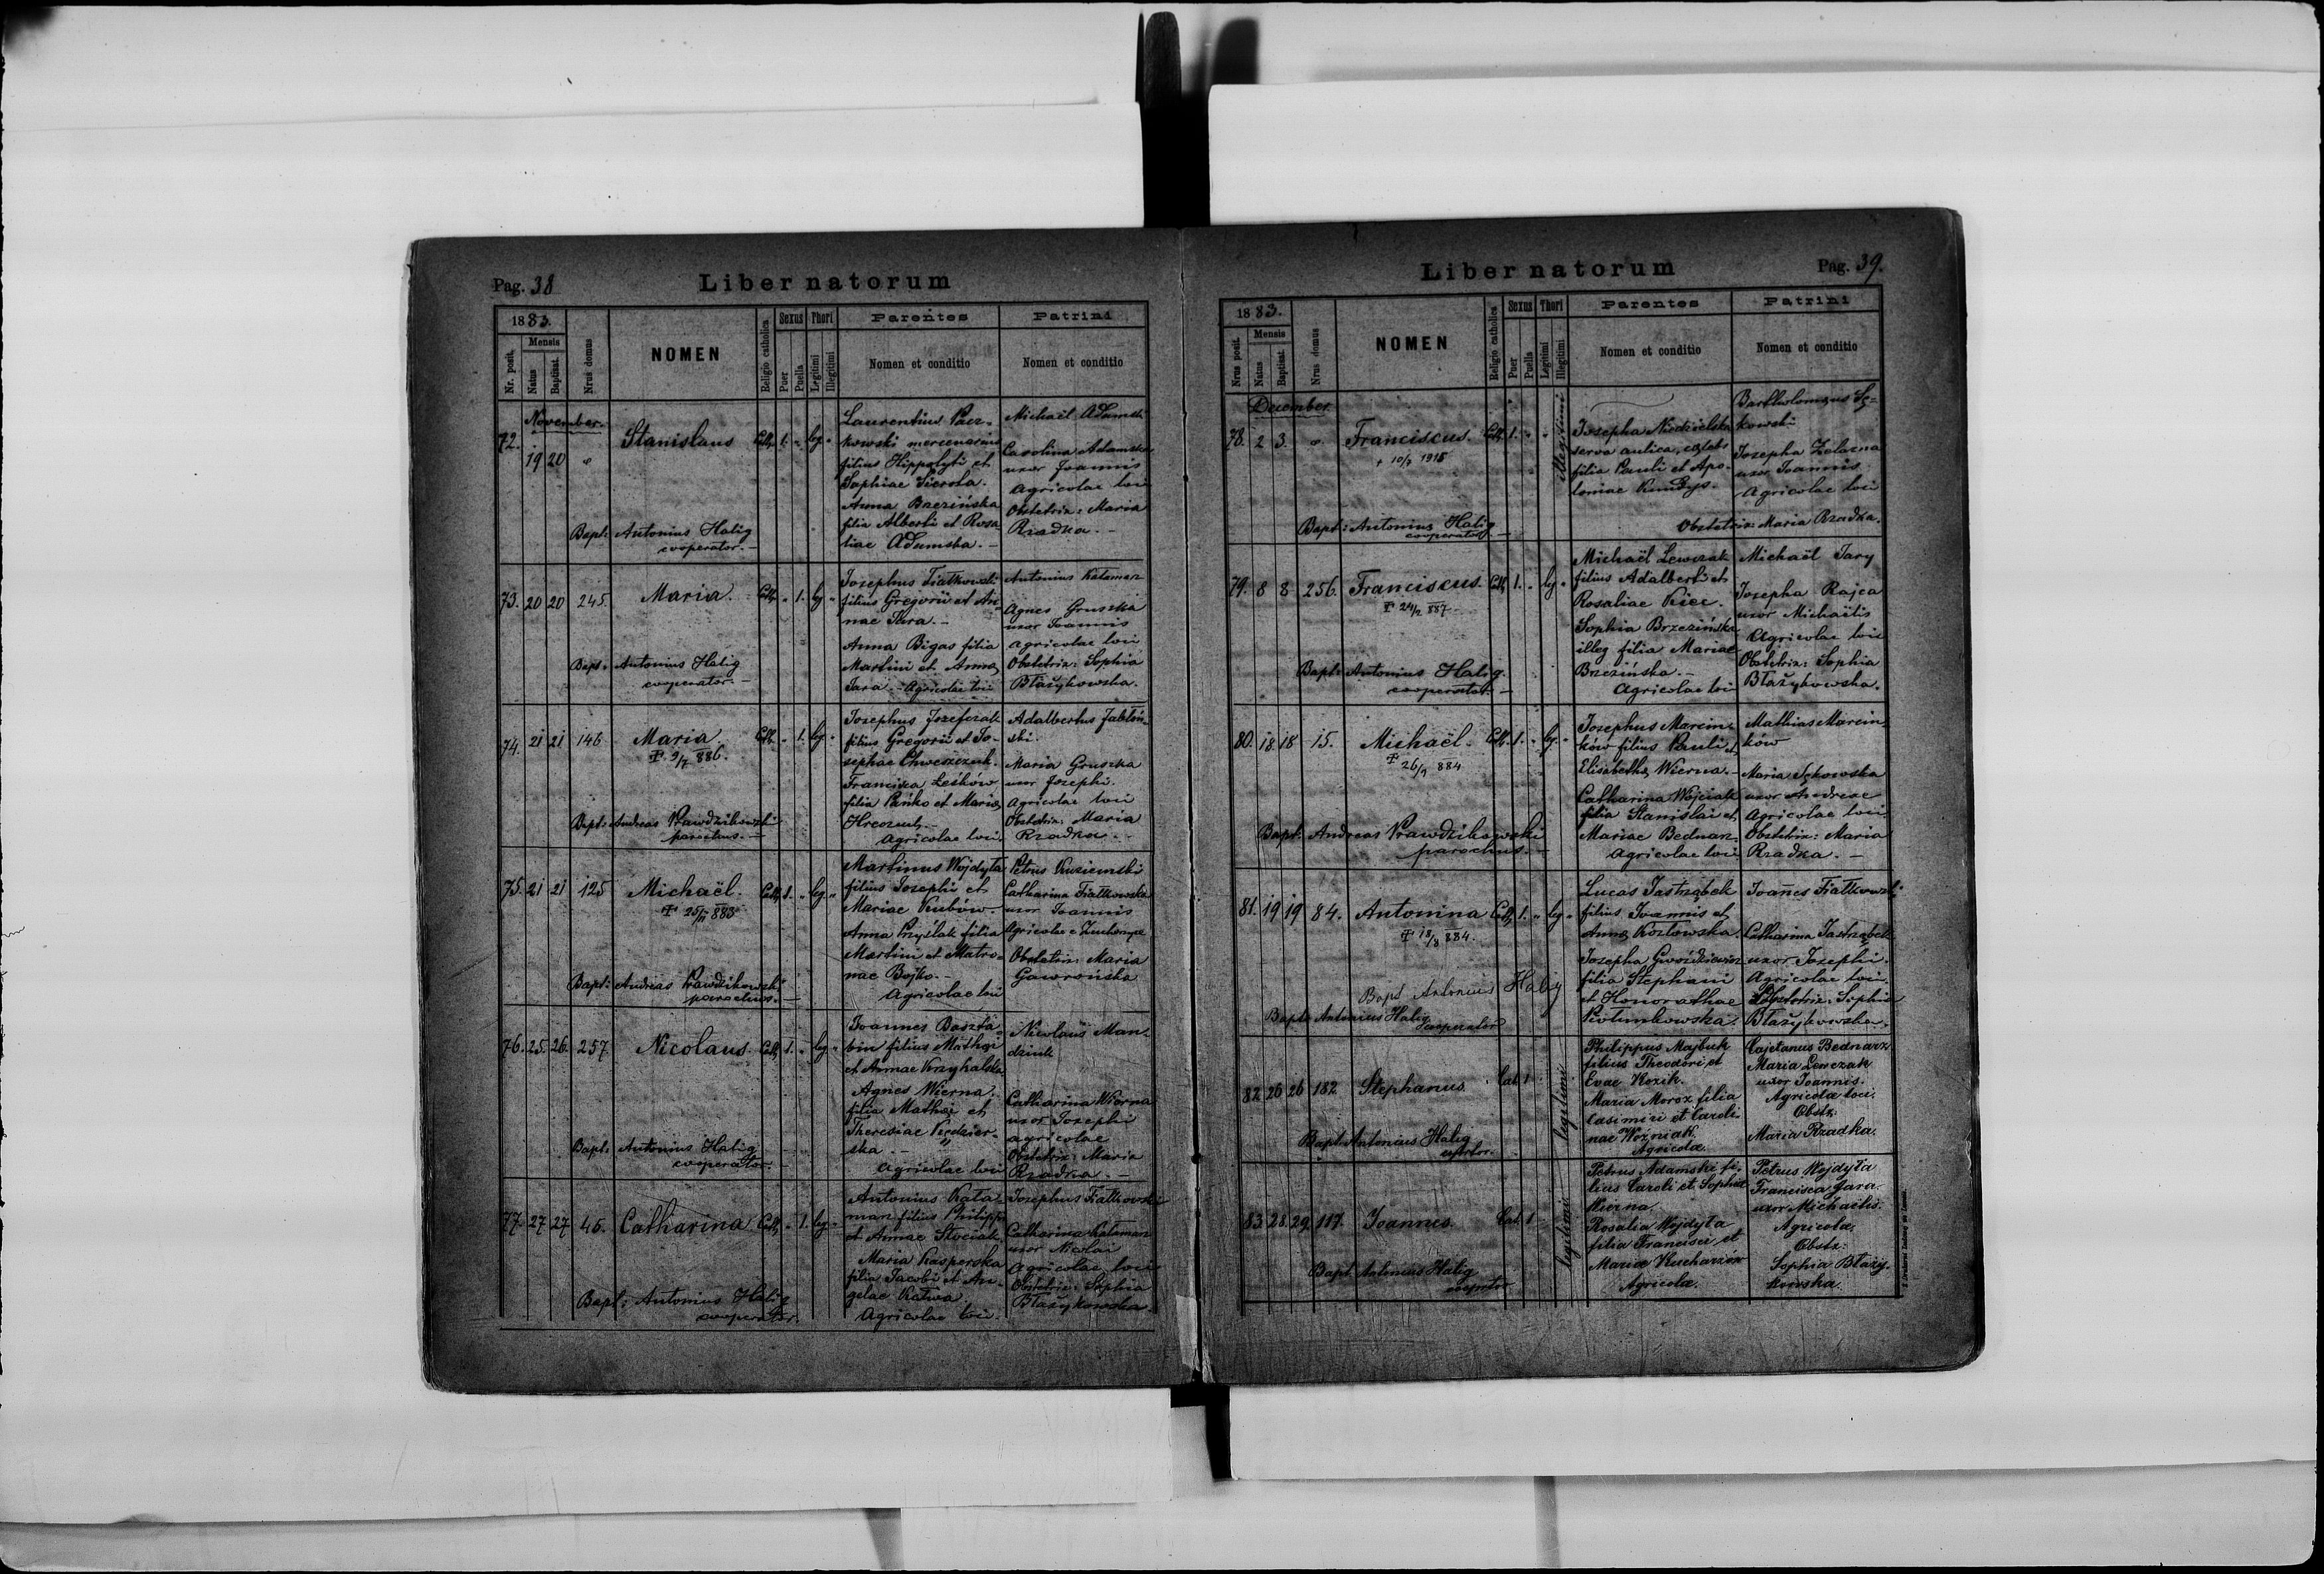 Pag. 38
Liber natorum
1883.
Nr. posit.
Mensis
Natus
Baptisat.
Nrus domus
NOMEN
Religio catholica
Sexus
Puer
Puella
Thori
Legitimi
Illegitimi
Parentes
Nomen et conditio
Patrini
Nomen et conditio
November.
72. 19 20 Stanislaus Cath. 1. " leg. "
Laurentius Pacz-
kowski mercenarius
filius Hippolyti et
Sophiae Sierota.
Anna Brzezińska
filia Alberti et Rosa
liae Adamska. -
Michaël Adamski
Carolina Adamska
uxor Joannis
Agricolae loci
Obstetrix: Maria
Rzadka. -
Bapt: Antonius Halig
cooperator. -
73. 20 20 245. Maria. Cath. " 1. leg. "
Josephus Fiałkowski
filius Gregorii et An-
nae Jara. -
Anna Bigas filia
Martini et Anna
Jara. - Agricolae loci
Antonius Kałaman
Agnes Gruszka
uxor Joannis
agricolae loci
Obstetrix: Sophia
Błażykowska.
Bapt: Antonius Halig
cooperator. -
74. 21 21 146 Maria. Cath. " 1. leg. "
886.
Josephus Jozefczak
filius Gregorii et Jo-
sephae Chweszczuk.
Francisca Leśków
filia Pańko et Maria
Agricolae loci.
Adalbertus Jabłoń-
ski.
Maria Gruszka
uxor Josephi.
Agricolae loci
Obstetrix: Maria
Rzadka. -
Bapt: Andreas Prawdzikowski
parochus. -
75. 21 21 125 Michaël. Cath. 1. " leg. "
883
Martinus Wojdyła
filius Josephi et
Mariae Kubów.
Anna Przyślak filia
Martini et Matro-
nae Bojko. -
Agricolae loci
Petrus Kuziemski
Catharina Fiałkowska
uxor Joannis
Obstetrix: Maria
Gawrońska
Bapt: Andreas Prawdzikowski
parochus. -
76. 25. 26. 257. Nicolaus. Cath. 1. " leg. "
Joannes Baszta-
bin filius Mathaei
et Annae Krzyhalska
Agnes Wierna.
filia Mathaei et
Theresiae Kędzier-
ska. -
Agricolae loci
Nicolaus Man-
dziuk
Catharina Wierna
uxor Josephi
agricolae
Obstetrix: Maria
Rzadka. -
Bapt: Antonius Halig
cooperator. -
77. 27 27 46. Catharina Cath. " 1. leg. "
Antonius Kała-
man filius Philippi
et Annae Stociak.
Maria Kasperska
filia Jacobi et An-
gelae Kałwa.
Agricolae loci.
Josephus Fiałkowski
Catharina Kałaman
uxor Nicolai
Agricolae loci
Obstetrix: Sophia
Błażykowska.
Bapt: Antonius Halig
cooperator.
Liber natorum
Pag. 39.
1883.
Nrus posit.
Mensis
Natus
Baptisat.
Nrus domus
NOMEN
Religio catholica
Sexus
Puer
Puella
Thori
Legitimi
Illegitimi
Parentes
Nomen et conditio
Patrini
Nomen et conditio
December.
78. 2 3. Franciscus. Cath. 1. " " illegitimi
1915
Josepha Niedzielska
serva aulica,
filia Pauli et Apo-
loniae Kundys.
Bartholomaeus Sę-
kowski
Josepha Żelazna
uxor Joannis
Agricolae loci
Obstetrix: Maria Rzadka.
Bapt: Antonius Halig
cooperator. -
79. 8 8 256. Franciscus. Cath. 1. " leg. "
887.
Michaël Lewczak
filius Adalberti et
Rosaliae Kiec.
Sophia Brzezińska
illeg filia Mariae
Brzezińska. -
Agricolae loci
Michaël Jary
Josepha Rajca
uxor Michaëlis
Agricolae loci
Obstetrix: Sophia
Błażykowska.
Bapt: Antonius Halig.
cooperator. -
80. 18 18 15. Michaël. Cath. 1. " leg. "
884
Josephus Marcin-
ków filius Pauli et
Elisabetha Wierna. -
Catharina Wojciak
filia Stanislai et
Mariae Bednarz
Agricolae loci
Mathias Marcin-
ków
Maria Sękowska
uxor Andreae
Agricolae loci
Obstetrix: Maria
Rzadka. -
Bapt: Andreas Prawdzikowski
parochus. -
81. 19 19 84. Antonina Cath. 1. " leg. "
884.
Lucas Jastrząbek
filius Joannis et
Anna Kozłowska.
Josepha Gwoździewicz
filia Stephani
et Honorathae
Piotunkowska.
Joannes Fiałkowski
Catharina Jastrząbek
uxor Josephi.
Agricolae loci.
Obstetrix: Sophia
Błażykowska.
Bapt Antonius Halig
Bapt: Antonius Halig
cooperator
82. 26 26 182 Stephanus. Cat. 1 legitimi
Philippus Majbuk
filius Theodori et
Evae Kozik.
Maria Moroz filia
Casimiri et Caroli-
nae Woźniak.
Agricolae.
Cajetanus Bednarz
Maria Lewczak
uxor Joannis.
Agricolae loci.
Obstx.
Maria Rzadka.
Bapt Antonius Halig
83. 28. 29. 117. Joannes. Cat. 1 legitimi
Petrus Adamski fi-
lius Caroli et Sophiae
Wierna.
Rosalia Wojdyła
filia Francisci et
Mariae Kucharzów
Agricolae.
Petrus Wojdyła
Francisca Jara.
uxor Michaelis.
Agricolae.
Obstx:
Sophia Błaży-
kowska.
Bapt Antonius Halig